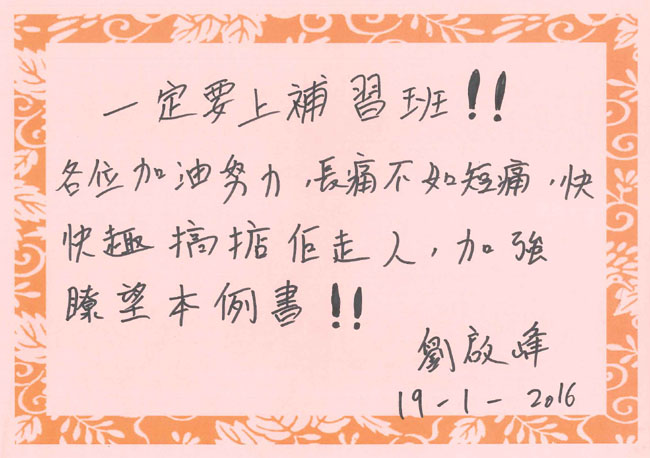 一定要上補習班!!
各位加油努力，長痛不如短痛，快
快趣搞掂佢走人，加強
瞭望本例書!!
劉啟峰
19-1-2016